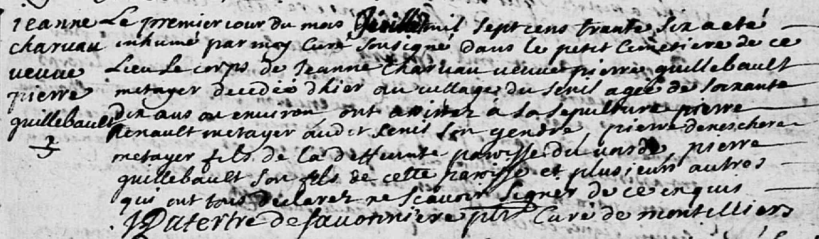 jeanne
charuau
veuve
pierre
quillebault
Le premier jour du mois Juillet mil sept cens trante six a eté
inhumé par moy Curé Sousigné dans le petit Cimetiere de ce
Lieu Le corps de Jeanne Charuau veuve pierre quillebault
metayer decedée d'hier au village du Senil agée de soixante
dix ans ou environ ont assisté à la Sepulture pierre
Renault metayer audit Senil Son gendre, pierre
metayer fils de la deffunte paroisse du pierre
quillebault Son fils de cette paroisse et plusieurs autres
qui ont tous declarez ne Scavoir Signer de ce enquis
J Datertre de Savonniere ptre Curé de montilliers